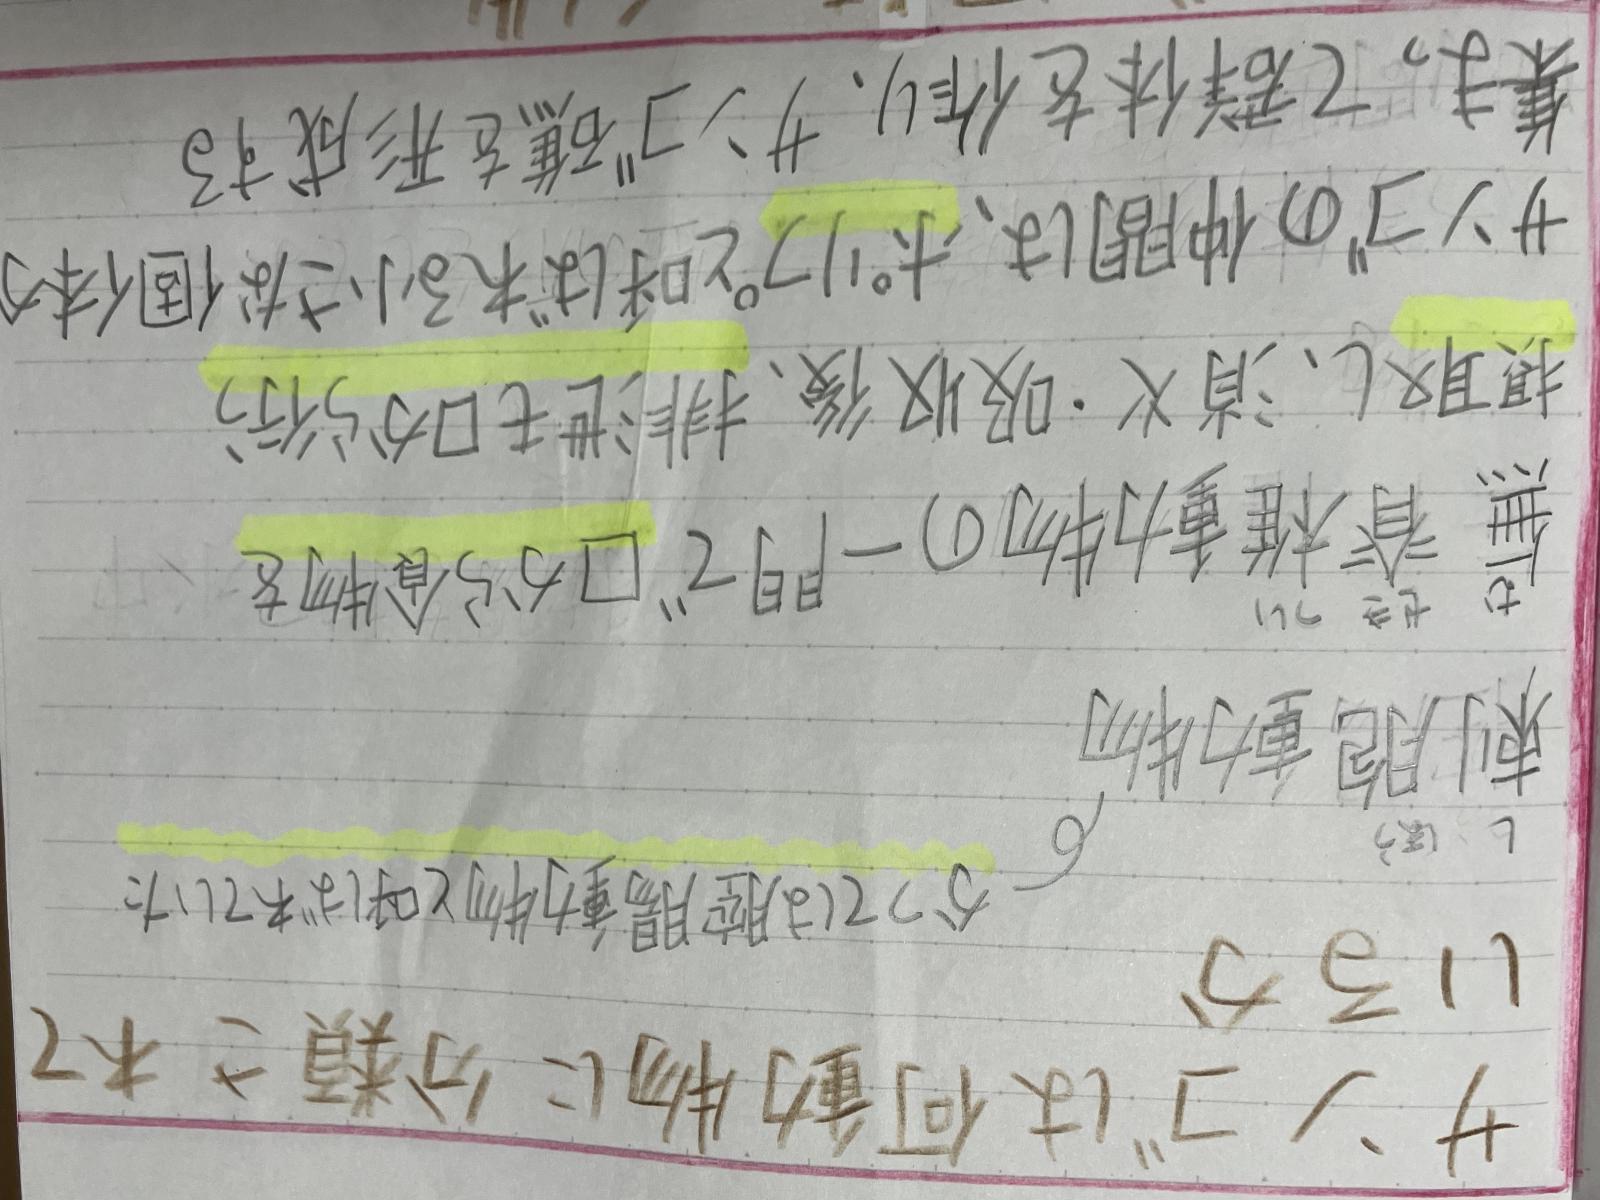 サンゴは何動物に分類されて
いるか
かつては腔腸動物と呼ばれていた
し ほう
刺胞動物
む せき つい
無脊椎動物の一門で口から食物を
摂取し、消火・吸収後、排泄も口から行う
サンゴの仲間は、ポリプと呼ばれる小さな個体が
集まって群体を作り、サンゴ礁を形成する